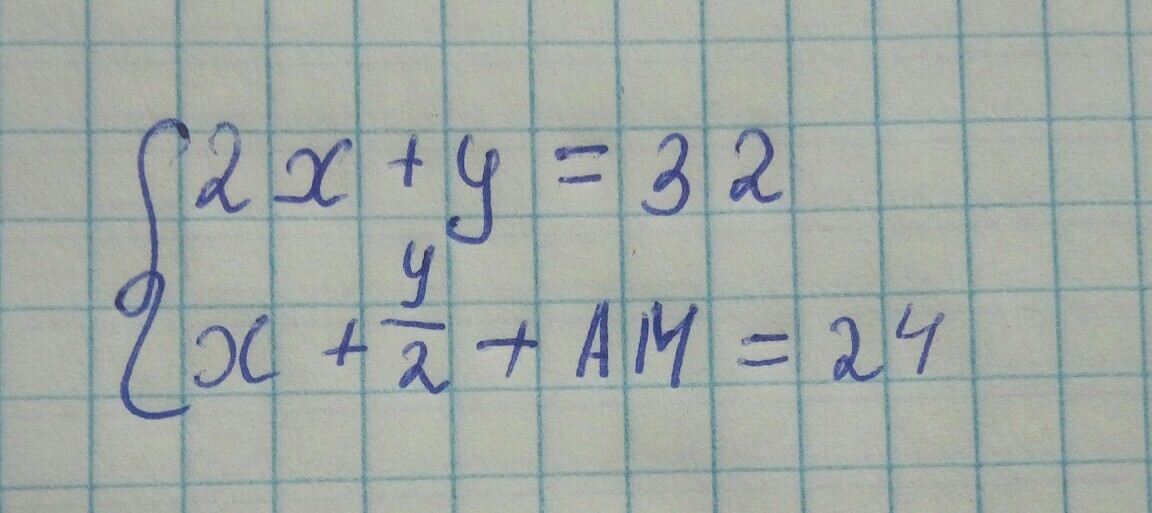 2x + y = 32
x + y/2 + AM = 24